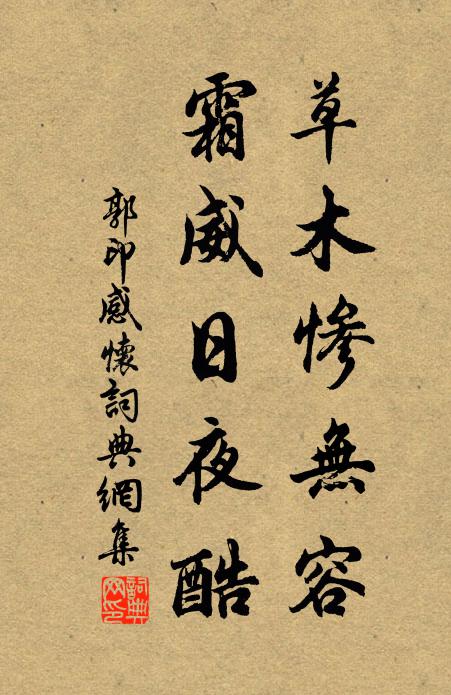 草木慘無容
霜威日夜酷
郭印感懷詞典網集
詞典網印